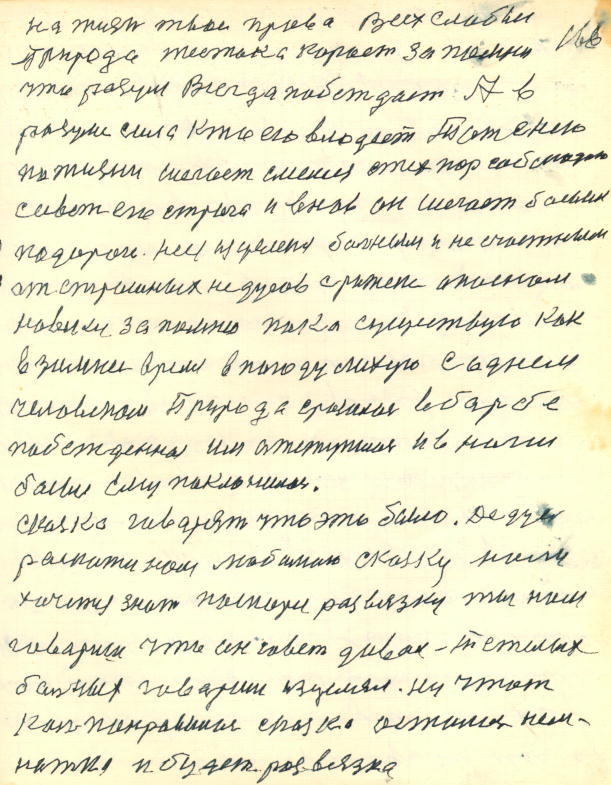 на жизн твои права Всех слабы
Природа жестока корает Запомни 166
что разум Всегда побеждает А в
разуме сила Кто его владеет Тот с нею
по жизни шегает смелея с тех пор
совет его строга и внов он шегает
по дороги. нес изцеления болным и не счастным
от страшных недугов
на веки запомню пока существую Как
в зимнее время в погоду лихую С однем
человеком Природа сразилас в борбе
побежденна им отступила и в ноги
болше ему поклонилас.
сказка говорят что это было. Дедуля
раскажи нам любимаю сказку нам
хочется знат поскоре развязку ты нам
говориш что он совет давал – Тежелых
болных говориш изцелял. ну что ж
Как понравилас сказка осталось нем-
ножко и будет развязка